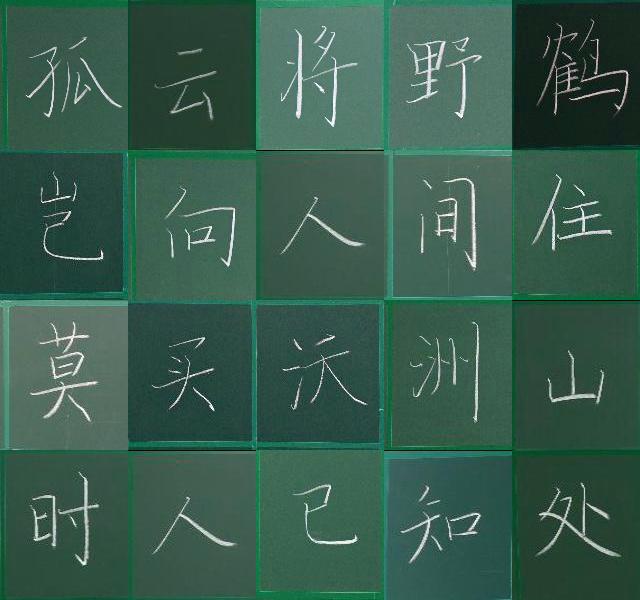 孤云将野鹤
岂向人间住
莫买沃洲山
时人已知处